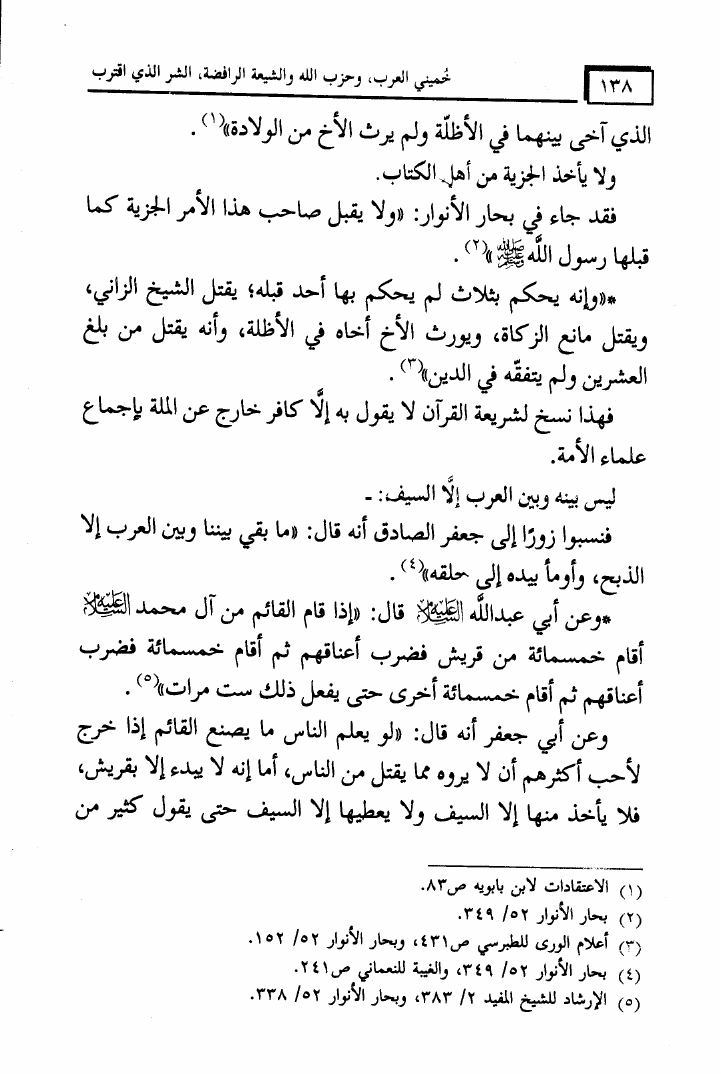 ١٣٨
خُميني العرب، وحزب الله والشيعة الرافضة، الشر الذي اقترب
الذي آخى بينهما في الأظلّة ولم يرث الأخ من الولادة»(١).
ولا يأخذ الجزية من أهل الكتاب.
فقد جاء في بحار الأنوار: «ولا يقبل صاحب هذا الأمر الجزية كما
قبلها رسول اللَّه ﷺ»(٢).
*«وإنه يحكم بثلاث لم يحكم بها أحد قبله؛ يقتل الشيخ الزاني،
ويقتل مانع الزكاة، ويورث الأخ أخاه في الأظلة، وأنه يقتل من بلغ
العشرين ولم يتفقّه في الدين»(٣).
فهذا نسخ لشريعة القرآن لا يقول به إلَّا كافر خارج عن الملة بإجماع
علماء الأمة.
ليس بينه وبين العرب إلَّا السيف: ـ
فنسبوا زورًا إلى جعفر الصادق أنه قال: «ما بقي بيننا وبين العرب إلا
الذبح، وأومأ بيده إلى حلقه»(٤).
*وعن أبي عبداللَّه عليه السلام قال: «إذا قام القائم من آل محمد عليه السلام
أقام خمسمائة من قريش فضرب أعناقهم ثم أقام خمسمائة فضرب
أعناقهم ثم أقام خمسمائة أخرى حتى يفعل ذلك ست مرات»(٥).
وعن أبي جعفر أنه قال: «لو يعلم الناس ما يصنع القائم إذا خرج
لأحب أكثرهم أن لا يروه مما يقتل من الناس، أما إنه لا يبدء إلا بقريش،
فلا يأخذ منها إلا السيف ولا يعطيها إلا السيف حتى يقول كثير من
(١) الاعتقادات لابن بابويه ص٨٣.
(٢) بحار الأنوار ٥٢/ ٣٤٩.
(٣) أعلام الورى للطبرسي ص٤٣١، وبحار الأنوار ٥٢/ ١٥٢.
(٤) بحار الأنوار ٥٢/ ٣٤٩، والغيبة للنعماني ص٢٤١.
(٥) الإرشاد للشيخ المفيد ٢/ ٣٨٣، وبحار الأنوار ٥٢/ ٣٣٨.